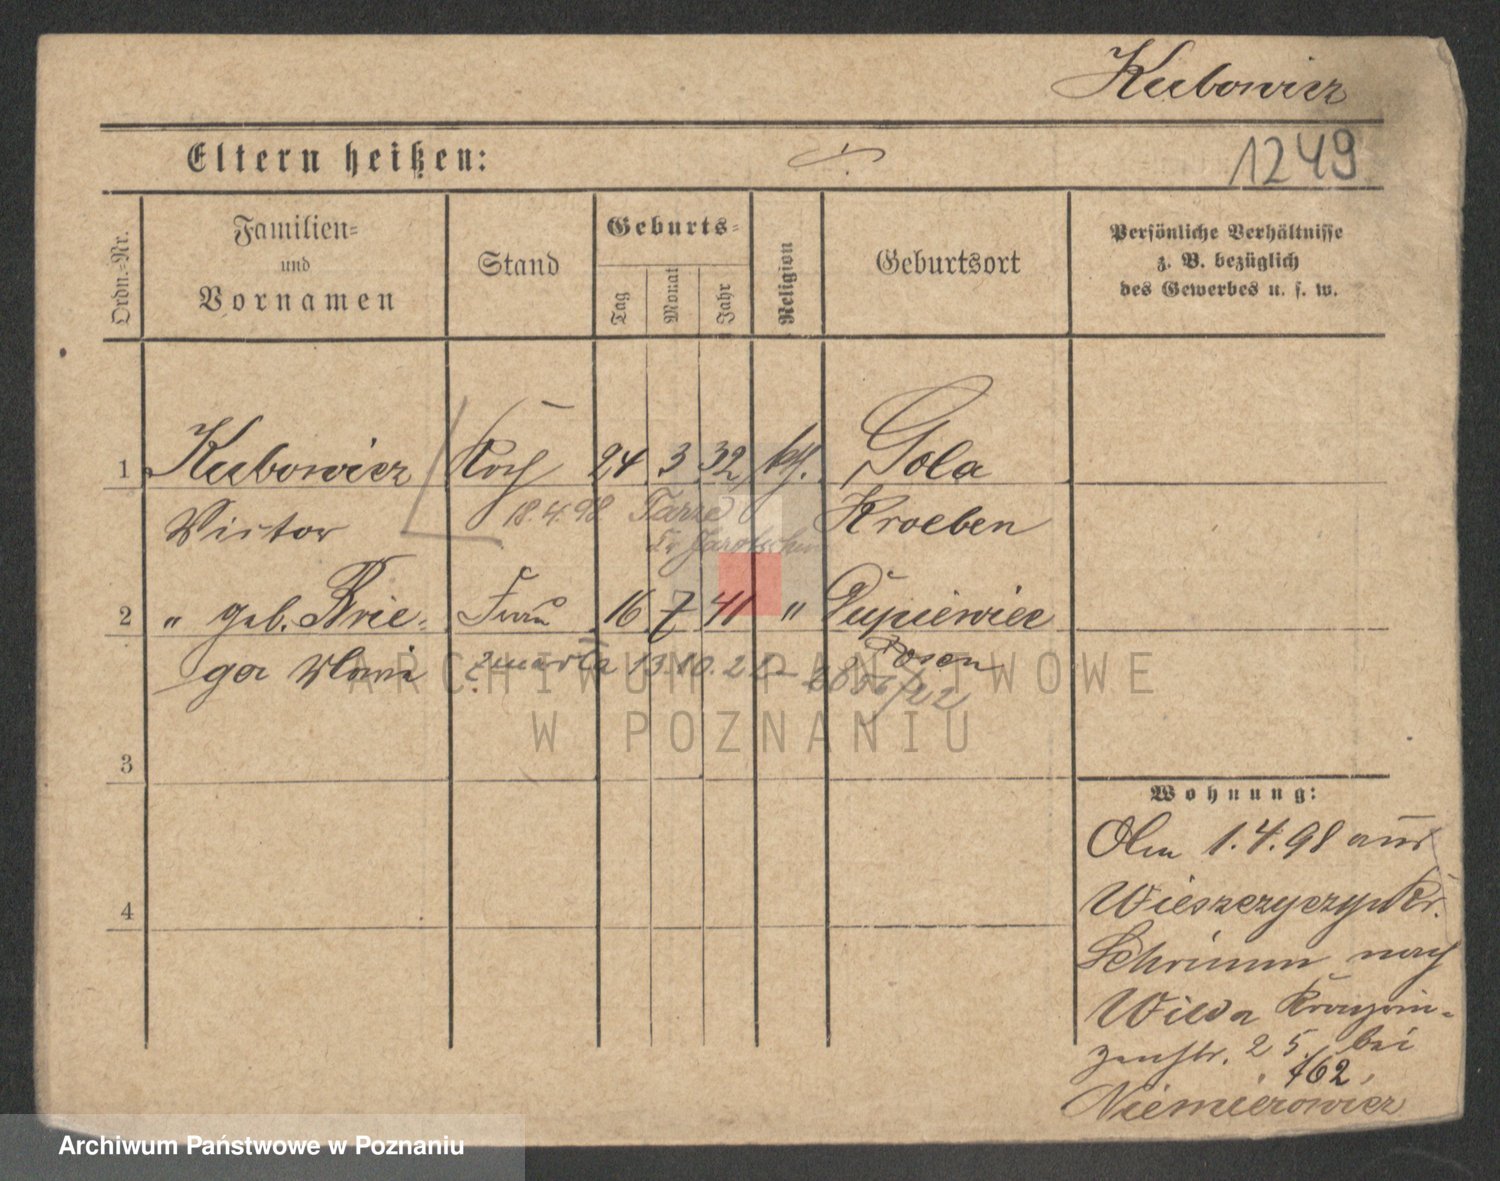 Kubowicz
Eltern heißen:
1249
Ordn.=Nr.
Familien=
und
Vornamen
Stand
Geburts=
Tag
Monat
Jahr
Religion
Geburtsort
Persönliche Verhältnisse
z. B. bezüglich
des Gewerbes u. s. w.
1 Kubowicz Koch 24. 3 32 kth. Gola
Victor 18.4.98 Kroeben
2 " geb. Brie- Frau 16 7 41 " Dupiewiec
ger Maria zmarła 13.10.22 Posen
3
4
Wohnung:
Am 1.4.98 aus
Wieszczyczyn Kr.
Schrimm nach
Wilda Kronprin-
zenstr. 25, bei
162,
Niemierowicz
ARCHIWUM PAŃSTWOWE
W POZNANIU
Archiwum Państwowe w Poznaniu